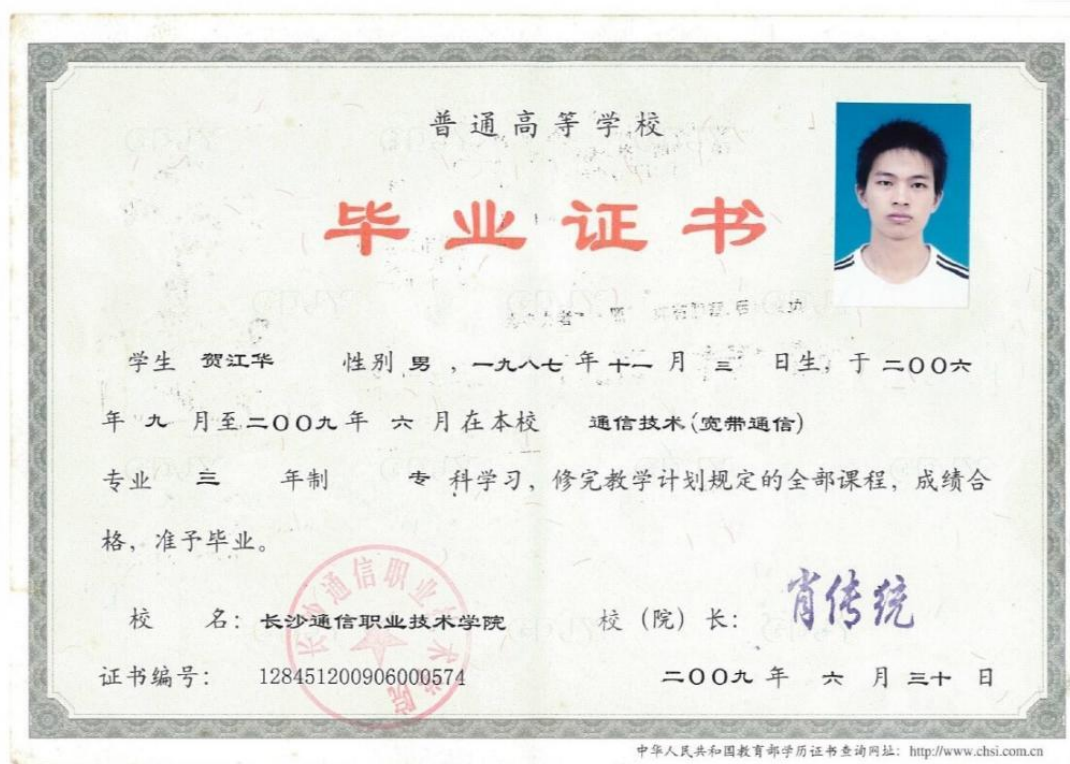 普通高等学校
毕业证书
学生 贺江华 性别 男 ，一九八七 年 十一 月 三 日生，于 二〇〇六
年 九 月至 二〇〇九 年 六 月在本校 通信技术(宽带通信)
专业 三 年制 专 科学习，修完教学计划规定的全部课程，成绩合
格，准予毕业。
校 名：长沙通信职业技术学院 校（院）长：肖传统
证书编号：128451200906000574 二〇〇九 年 六 月 三十 日
长沙通信职业技术学院
中华人民共和国教育部学历证书查询网址：http://www.chsi.com.cn